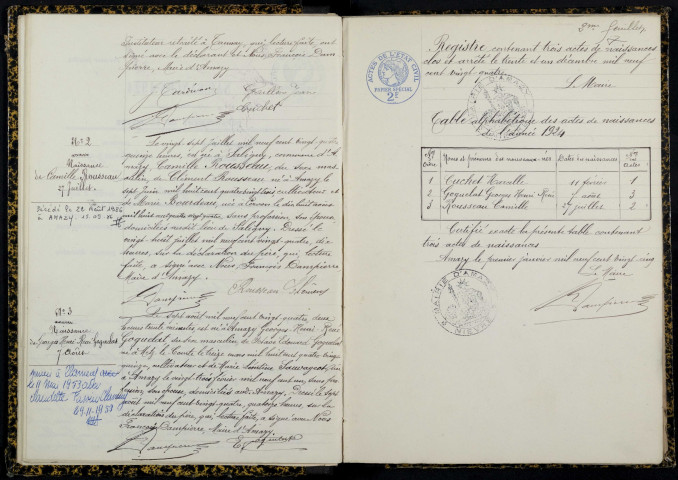 Instituteur retraité à Tannay, qui lecture faite, ont
signé avec le déclarant et Nous, François Dam-
pierre, Maire d'Amazy
Guchet
Dampierre
N° 2
Naissance
de Camille Rousseau
27 juillet
Décédé le 22 Août 1986
à AMAZY
Le vingt sept juillet mil neuf cent vingt quatre
heures, est né à Saligny, commune d'A-
mazy Camille Rousseau, du sexe mas-
culin, de Clément Rousseau né à Amazy le
sept juin mil huit cent quatre vingt dix cultivateur et
de Marie Bourdeau, née à
mil huit cent quatre vingt quatre, sans profession, son épouse,
domiciliés audit lieu de Saligny. Dressé le
vingt huit juillet mil neuf cent vingt quatre, dix
heures, sur la déclaration du père, qui, lecture
faite, a signé avec Nous François Dampierre,
Maire d'Amazy.
Rousseau Clément
Dampierre
N° 3
Naissance
de Georges Henri René Goguelat
7 août
Marié à Clamecy
le 11 Mai 1953 avec
Claudette
Le sept août mil neuf cent vingt quatre, deux
heures trente minutes, est né à Amazy Georges Henri René
Goguelat du sexe masculin, de Édouard Goguelat
né à Metz le Comte le treize mars mil huit cent quatre vingt
cultivateur et de Marie Sauvageot née
à Amazy le vingt trois février mil neuf cent un sans pro-
fession, son épouse, domiciliés audit Amazy. Dressé le sept
août mil neuf cent vingt quatre, quatorze heures, sur la
déclaration du père, qui, lecture faite, a signé avec Nous
François Dampierre, Maire d'Amazy.
Dampierre
Goguelat
2me Feuillet
ACTES DE L'ÉTAT CIVIL
PAPIER SPÉCIAL
2F
Registre contenant trois actes de naissances
clos et arrêté le trente et un décembre mil neuf
cent vingt quatre
Le Maire
Table alphabétique des actes de naissances
de l'année 1924
Nos d'ordre Noms et prénoms des nouveaux-nés Dates des naissances Nos des actes
1 Guchet 11 février 1
2 Goguelat Georges Henri René 7 août 3
3 Rousseau Camille 27 juillet 2
Certifié exacte la présente table contenant
trois actes de naissances
Amazy le premier janvier mil neuf cent vingt cinq
Le Maire
MAIRIE D'AMAZY
NIÈVRE
Dampierre